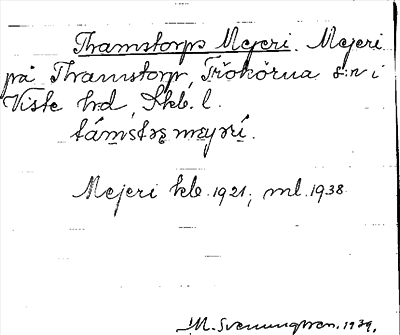 Thamstorps Mejeri. Mejeri
på Thamstorp, Trökörna s:n i
Viste hd, Skb. l.
támstəs mejərí.
Mejeri kb. 1921; ml. 1938
M. Svenungsson. 1939.